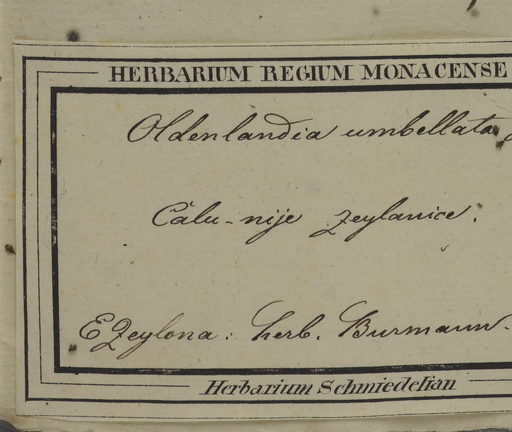 HERBARIUM REGIUM MONACENSE
Oldenlandia umbellata
Calu-nije zeylanice.
E Zeylona: herb. Burmann.
Herbarium Schmiedelian